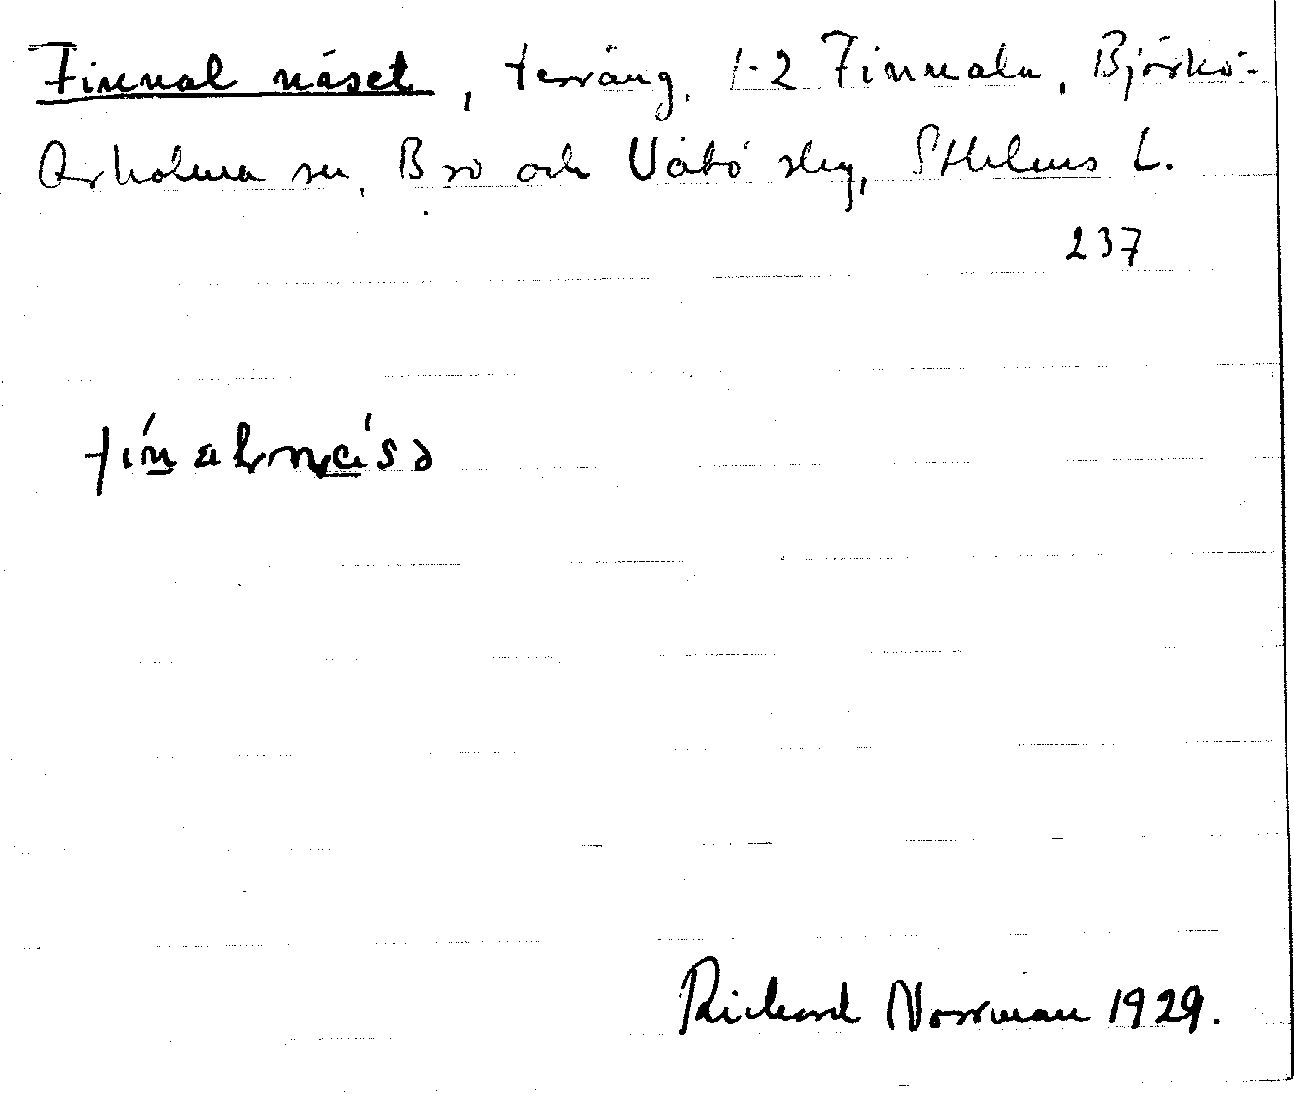 Finnal näset, terräng, 1-2 Finnala, Björkö-
Arholma sn, Bro och Vätö skg, Sthlms L.
237
Richard Norrman 1929.